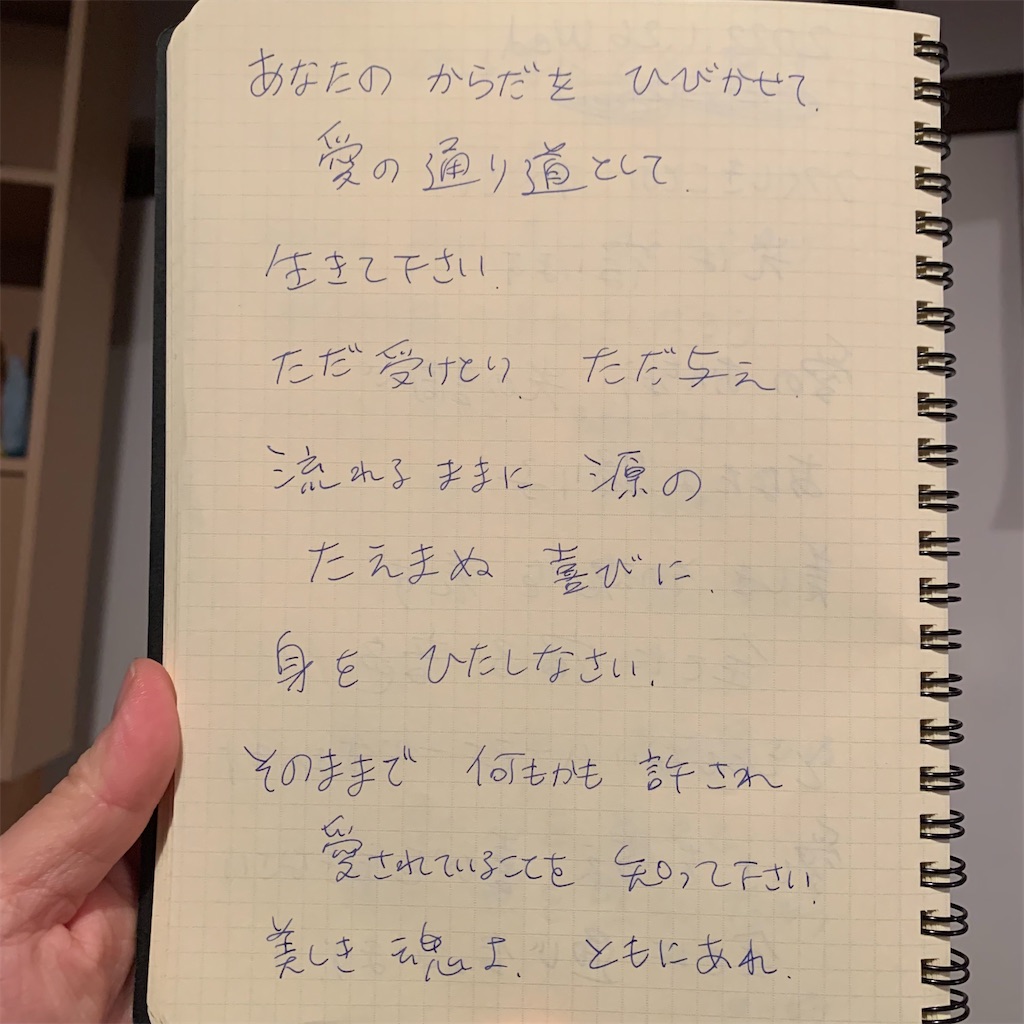 あなたの からだを ひびかせて.
愛の通り道として.
生きて下さい.
ただ受けとり. ただ与え.
流れるままに 源の
たえまぬ 喜びに.
身を ひたしなさい.
そのままで 何もかも 許され
愛されていることを 知って下さい.
美しき 魂よ. ともにあれ.